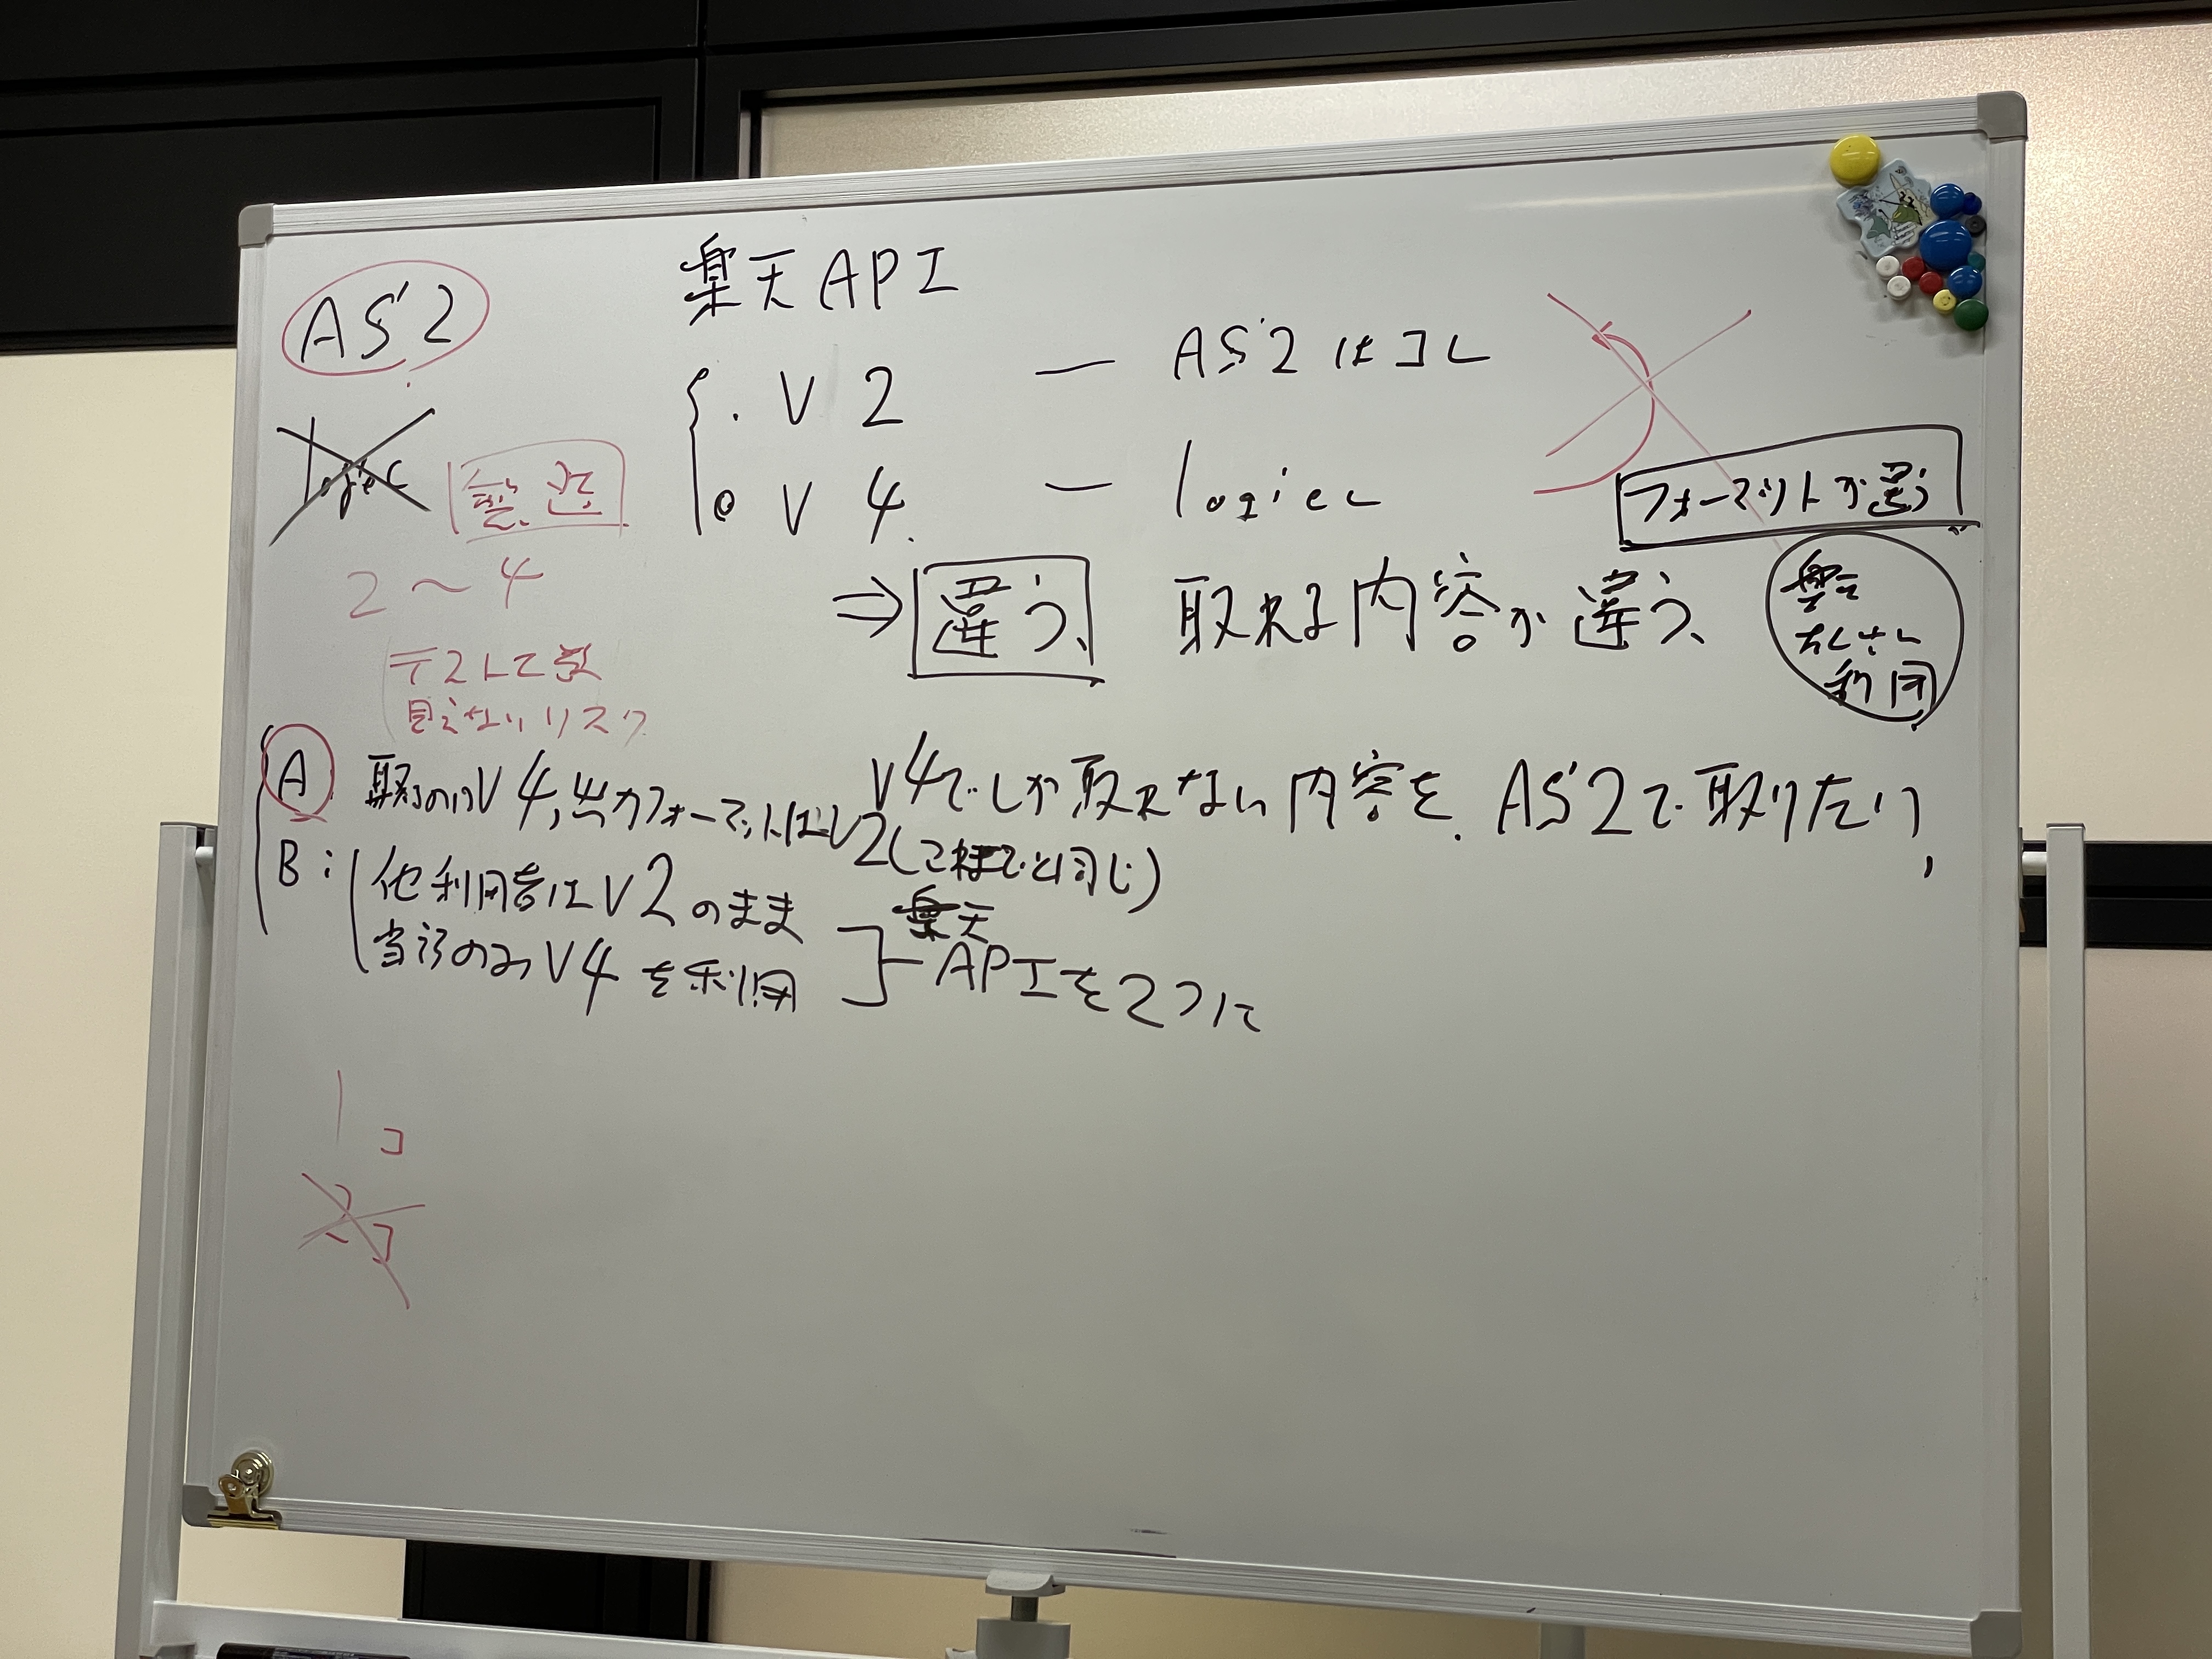 楽天API
AS2
・V2 — AS2はコレ
logiec
・V4 — logiec
フォーマットが違う
2〜4
⇒ 違う、 取れる内容が違う、
楽天
たくさん
利用
テストで
見えないリスク
V4でしか取れない内容を、AS2で取りたい、
A 取るのはV4、出力フォーマットはV2(これまでと同じ)
B: 他利用者はV2のまま
当該のみV4を利用
楽天
APIを2つに
1コ
2コ